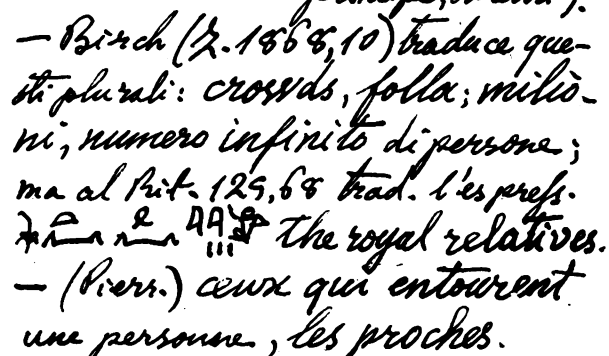 — Birch (Z. 1868,10) traduce que-
sti plurali: crowds, folla; milio-
ni, numero infinito di persone;
ma al Rit. 129,68 trad. l'espress.
the royal relatives.
— (Pierr.) ceux qui entourent
une personne, les proches.